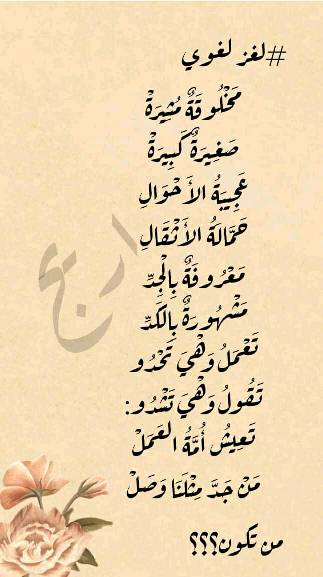 #لغز لغوي
مَخْلُوقَةٌ مُثِيرَةْ
صَغِيرَةٌ كَبِيرَةْ
عَجِيبَةُ الأَحْوَالِ
حَمَّالَةُ الأَثْقَالِ
مَعْرُوفَةٌ بِالْجِدِّ
مَشْهُورَةٌ بِالكَدِّ
تَعْمَلُ وَهْيَ تَحْدُو
تَقُولُ وَهْيَ تَشْدُو:
تَعِيشُ أُمَّةُ العَمَلْ
مَنْ جَدَّ مِثْلَنَا وَصَلْ
من تكون؟؟؟